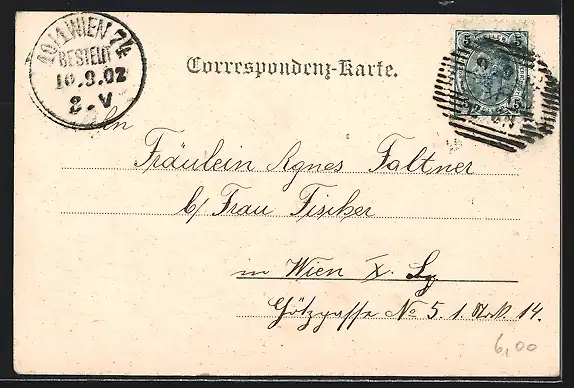 10/1 WIEN 74
BESTELLT
10.9.02
2.V
Correspondenz-Karte.
5 5
5 5
An
Fräulein Agnes Faltner
b/ Frau Fischer
in Wien X. Lg
Götzgasse No 5. 1. Stock 14.
6,00